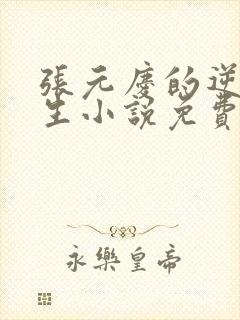 張元慶的逆
生小說免費
永樂皇帝